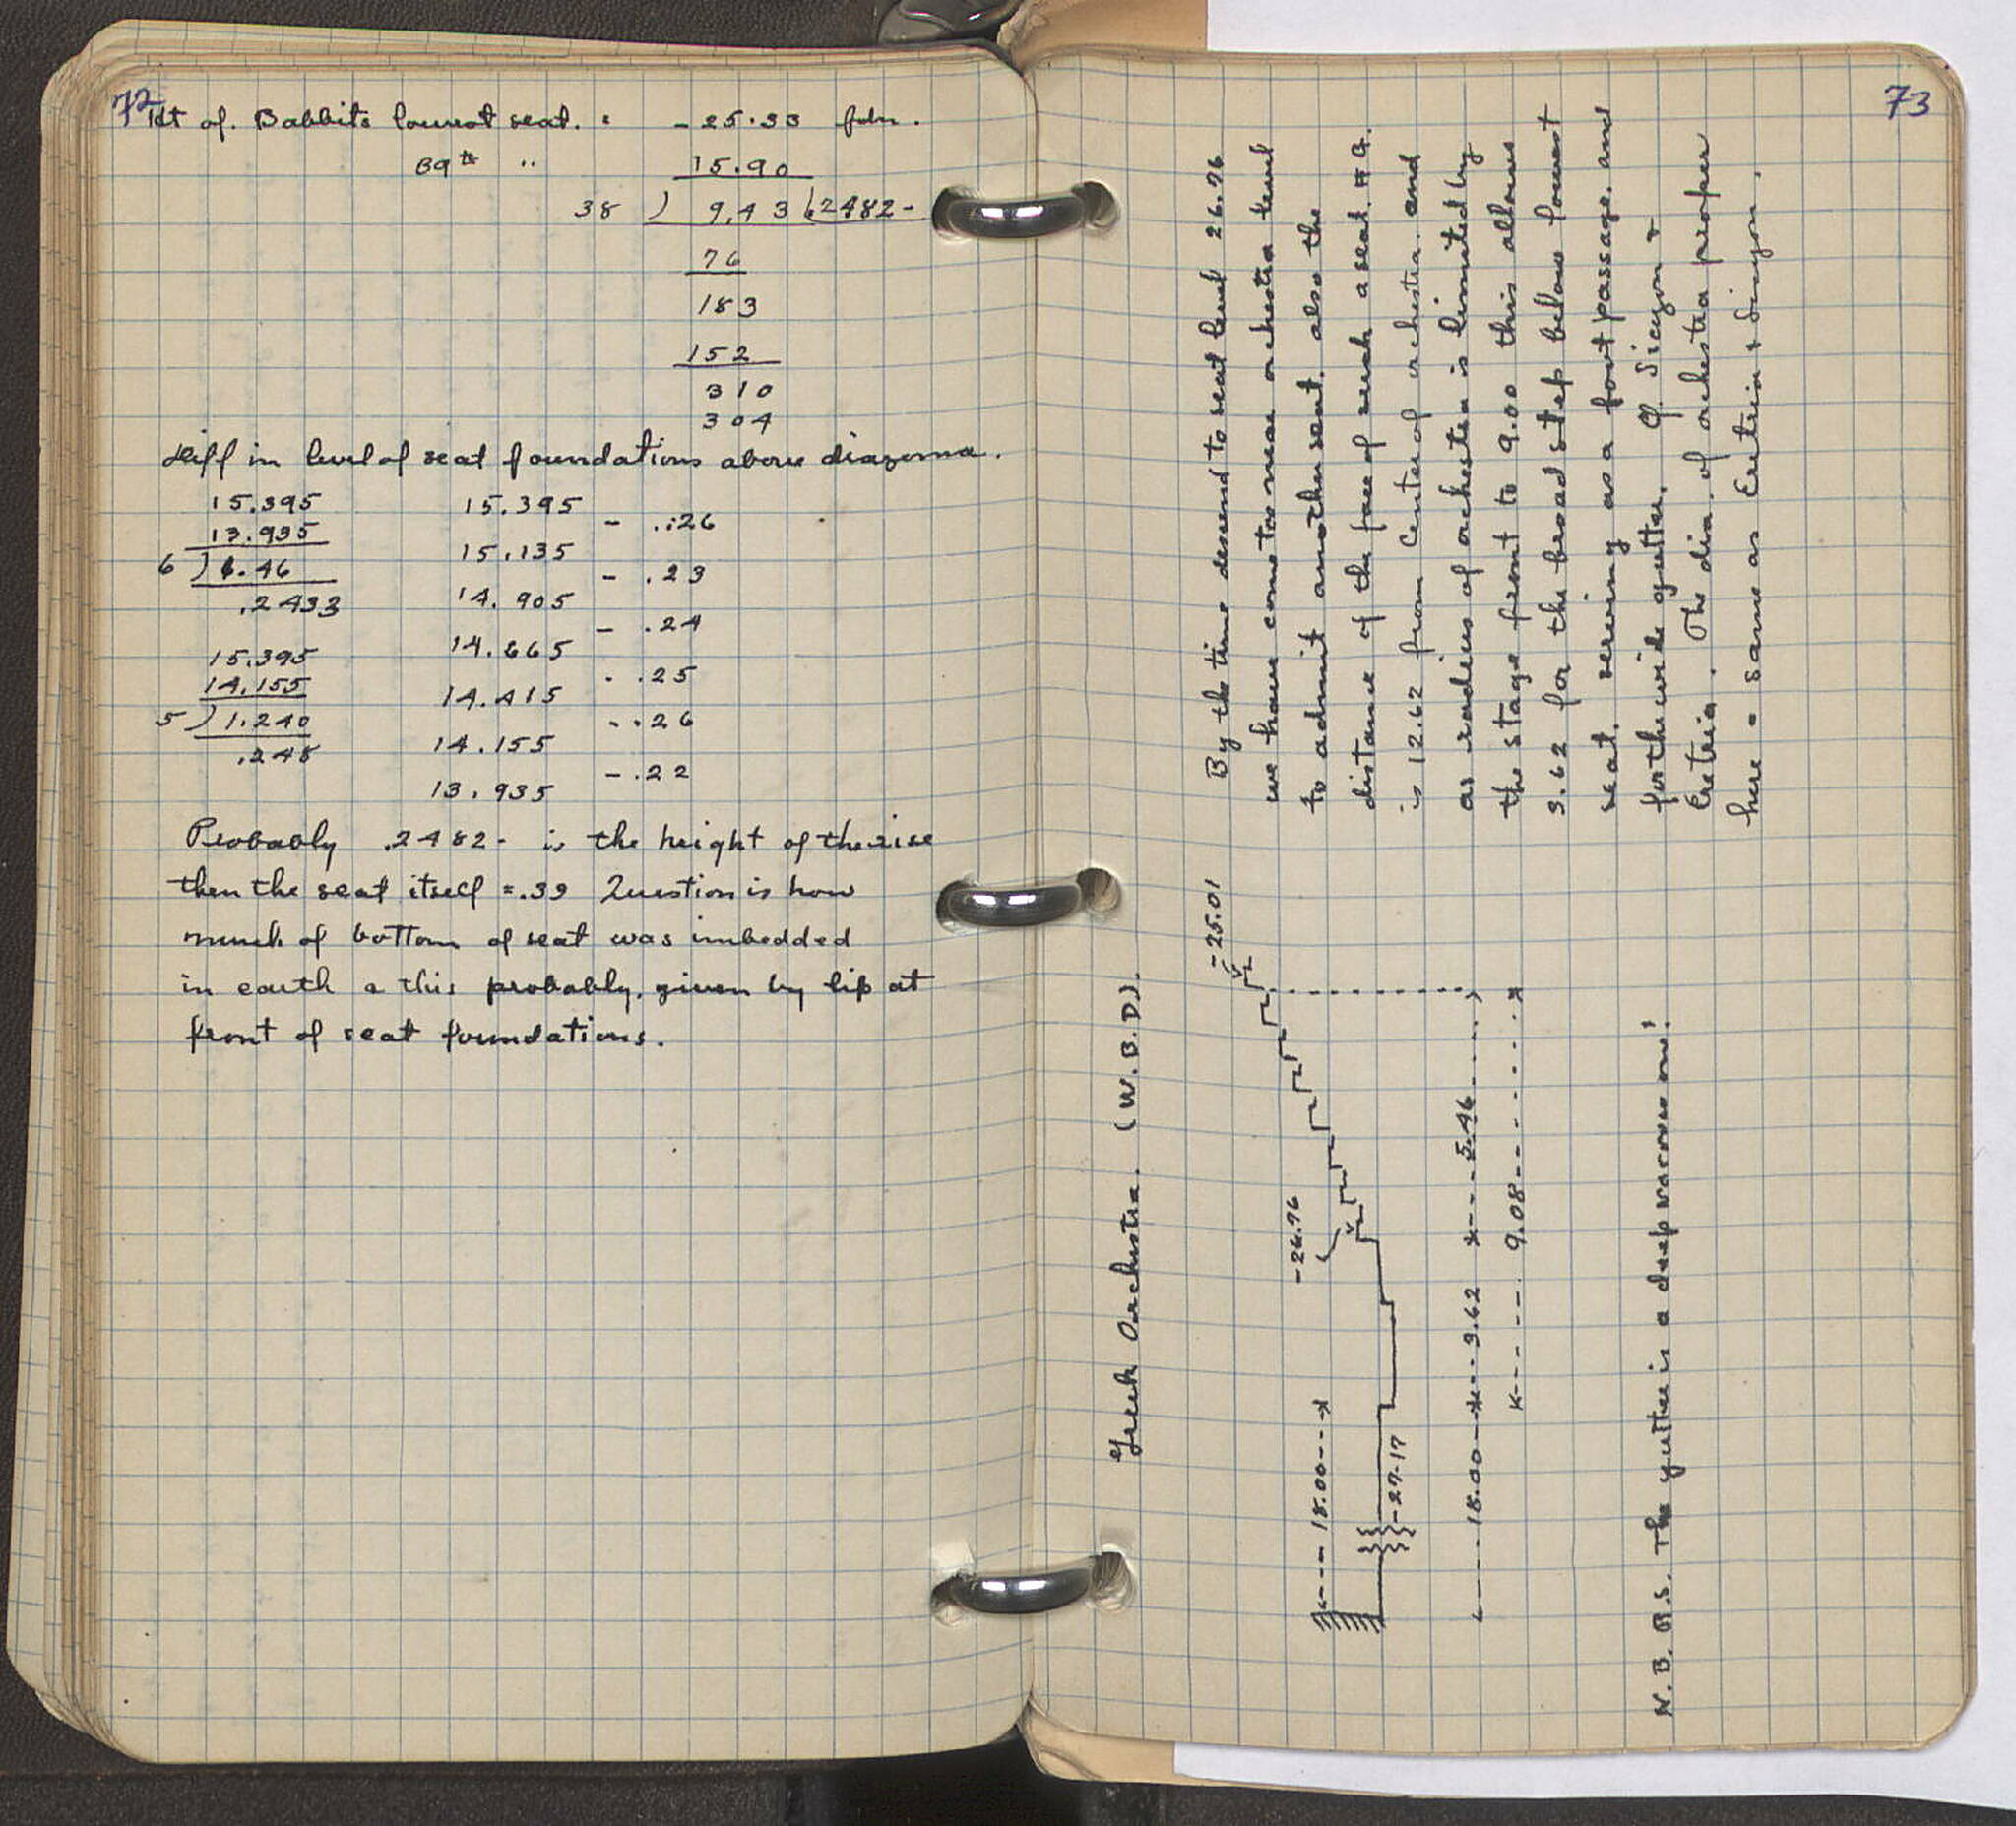 72
Ht of. Babbits lowest seat. = - 25.33 fdn.
39th " 15.90
38 ) 9.43 (.2482-
76
183
152
310
304
diff in level of seat foundations above diazoma.
15.395 15.395
13.935 - .26
6 ) 1.46 15.135
.2433 - .23
14.905
- .24
15.395 14.665
14.155 - .25
5 ) 1.240 14.415
.248 - .26
14.155
- .22
13.935
Probably .2482- is the height of the rise
then the seat itself = .39 Question is how
much of bottom of seat was imbedded
in earth & this probably, given by lip at
front of seat foundations.
73
Greek Orchestra. (W.B.D).
-25.01
-26.76
<--- 18.00 --->
-27.17
<---- 18.00 --*--- 3.62 *---- 5.46 ---->
<------ 9.08 ------>
N.B. R.S. The gutter is a deep narrow one!
By the time descend to seat level 26.76
we have come too near orchestra level
to admit another seat. also the
distance of the face of such a seat
is 12.62 from center of orchestra. and
as radius of orchestra is limited by
the stage front to 9.00 this allows
3.62 for the broad step below lowest
seat. serving as a foot passage. and
for the wide gutter. Cf. Sicyon &
Eretria. The dia. of orchestra proper
here = same as Eretria & Sicyon.